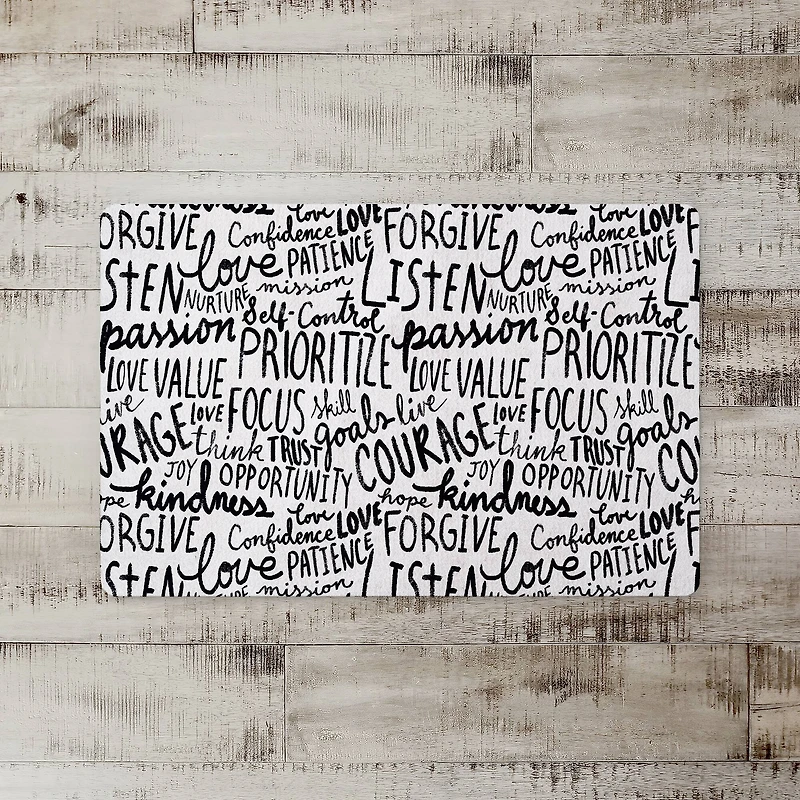 love love
ORGIVE Confidence LOVE FORGIVE Confidence LOVE F
ISTEN love PATIENCE LISTEN love PATIENCE LI
NURTURE mission NURTURE mission
passion Self-Control passion Self-Control
PRIORITIZE PRIORITIZE
LOVE VALUE LOVE VALUE
live LOVE FOCUS skill live LOVE FOCUS skill
URAGE think TRUST goals COURAGE think TRUST goals CO
JOY OPPORTUNITY JOY OPPORTUNITY
ope kindness hope kindness h
love love
ORGIVE Confidence LOVE FORGIVE Confidence LOVE F
ISTEN love PATIENCE LISTEN love PATIENCE LI
mission mission